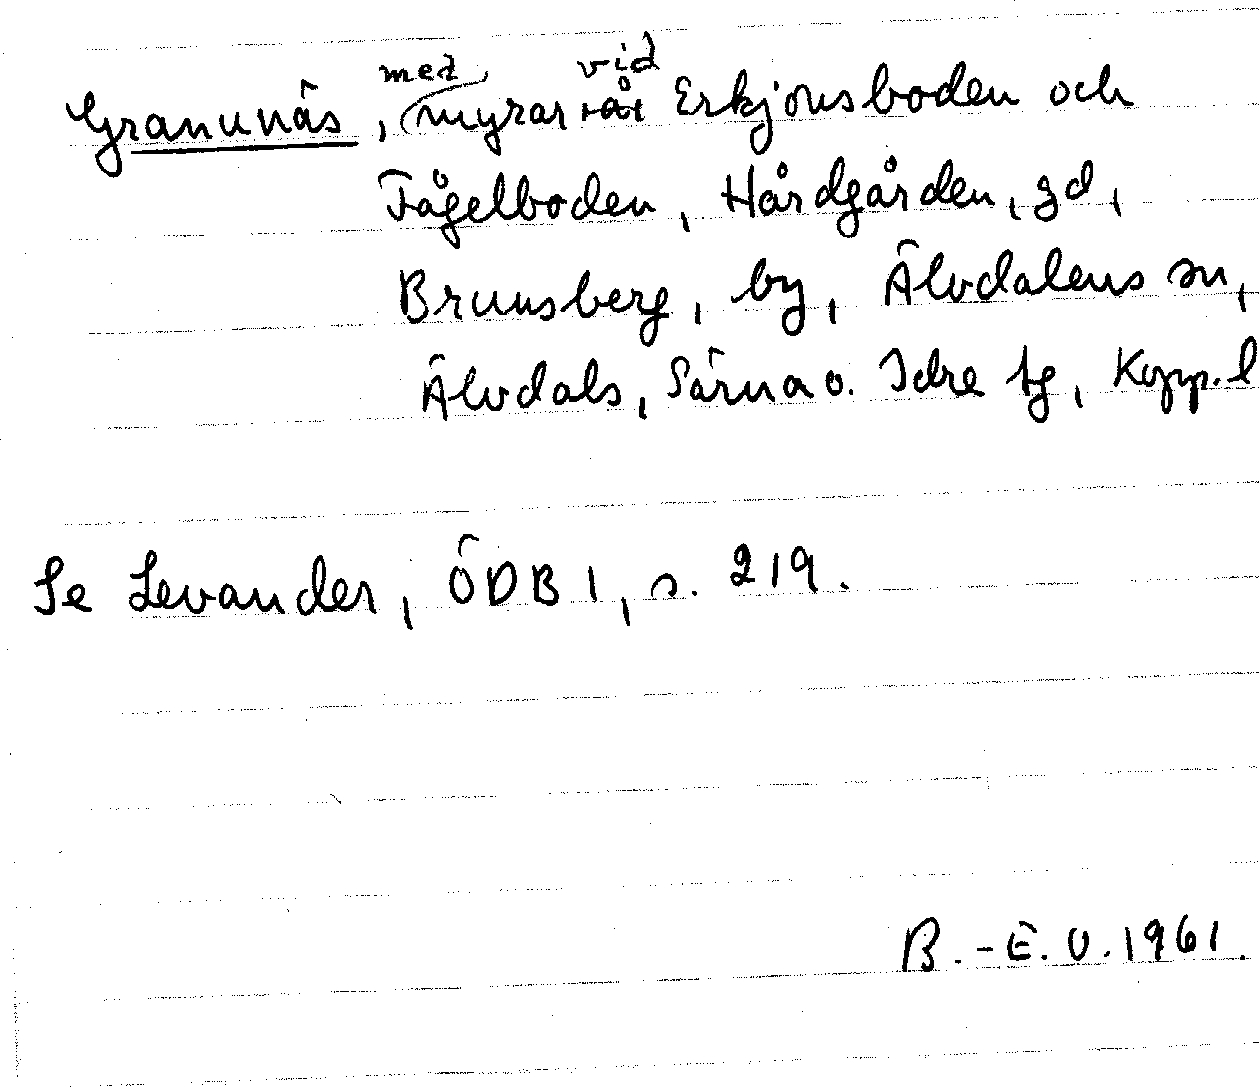 med vid
Granunäs, myrar vid Erkjonsboden och
Fågelboden, Hårdgården, gd,
Brunsberg, by, Älvdalens sn,
Älvdals, Särna o. Idre tg, Kopp. l
Se Levander, ÖDB 1, s. 219.
B.-E. O. 1961.